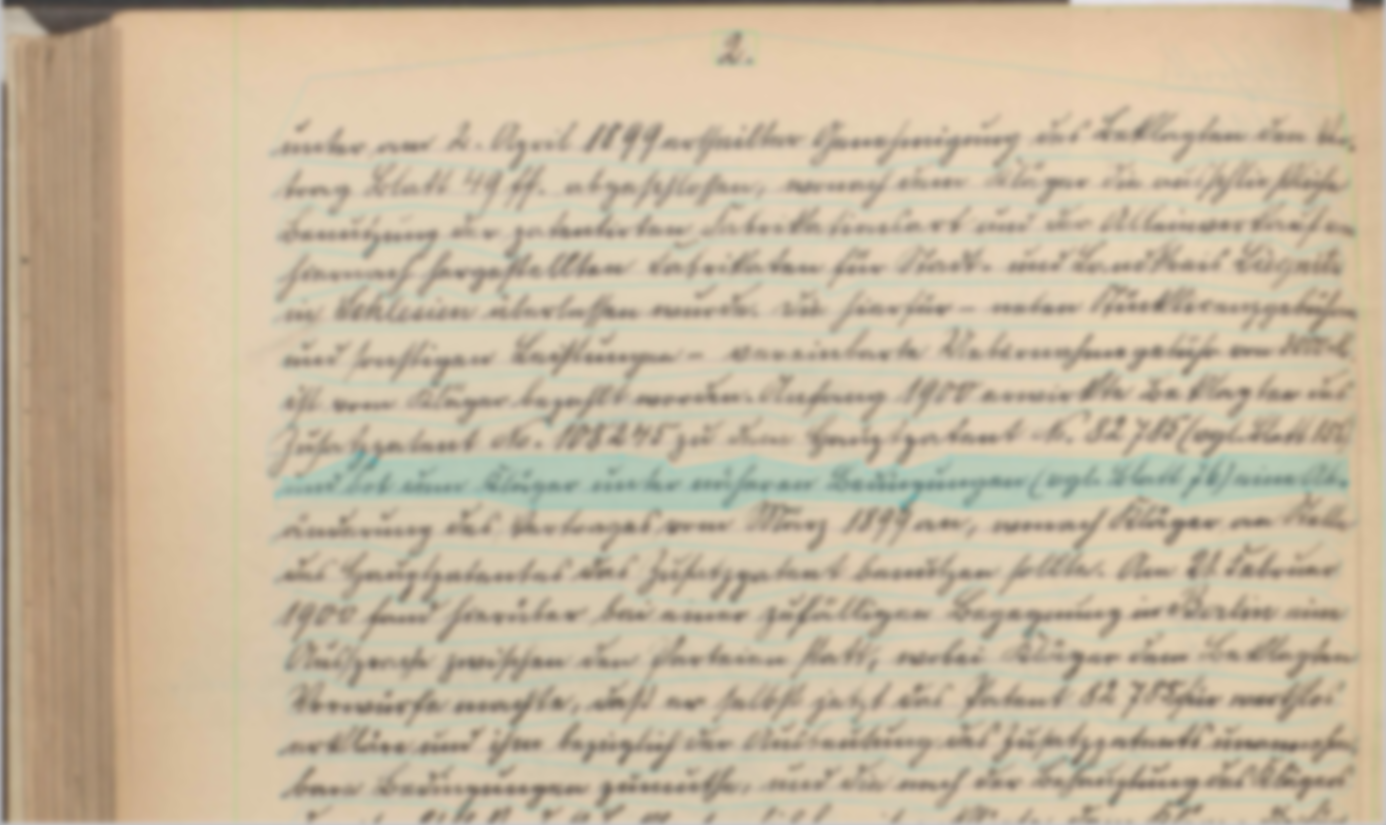 2.
unter am 2. April 1899 ertheilter Genehmigung des Beklagten den Ver-
trag Blatt 49 ff. abgeschlossen, wonach dem Kläger die ausschließliche
Benutzung der patentirten Fabrikationsart und der Alleinverkauf an
hiernach hergestellten Fabrikaten für Stadt- und Landkreis
in Schlesien überlassen wurde. Die hierfür - neben
und sonstigen Leistungen - vereinbarte von
ist vom Kläger bezahlt worden. Anfang 1900 erwirkte Beklagter das
Zusatzpatent No. 108245 zu dem Hauptpatent No. 82785 (vgl. Blatt
und bot dem Kläger unter näheren Bedingungen (vgl. Blatt 76) eine Ab-
änderung des Vertrages vom März 1899 an, wonach Kläger an Stelle
des Hauptpatentes das Zusatzpatent benutzen sollte. Am 21. Februar
1900 fand hierüber bei einer zufälligen Begegnung in Berlin eine
Aussprache zwischen den Parteien statt, wobei Kläger dem Beklagten
Vorwürfe machte, daß er selbst jetzt das Patent 82785 für werthlos
erkläre und ihm bezüglich der Ausbeutung des Zusatzpatents unannehm-
bare Bedingungen zumuthe, und die nach der Behauptung des Klägers